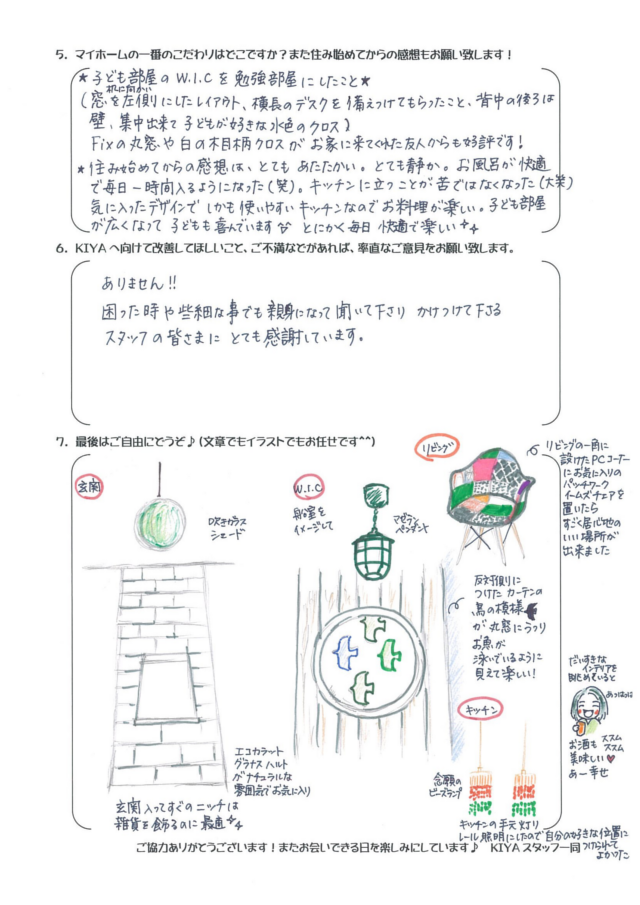 5. マイホームの一番のこだわりはどこですか？また住み始めてからの感想もお願い致します！
★子ども部屋のW.I.Cを勉強部屋にしたこと★
机に向かい
(窓を左側にしたレイアウト、横長のデスクを備えつけてもらったこと、背中の後ろは
壁、集中出来て子どもが好きな水色のクロス)
Fixの丸窓や白の木目柄クロスがお家に来てくれた友人からも好評です！
★住み始めてからの感想は、とてもあたたかい。とても静か。お風呂が快適
で毎日一時間入るようになった(笑)。キッチンに立つことが苦ではなくなった(大笑)
気に入ったデザインでしかも使いやすいキッチンなのでお料理が楽しい。子ども部屋
が広くなって子どもも喜んでいます とにかく毎日快適で楽しい
6. KIYAへ向けて改善してほしいこと、ご不満などがあれば、率直なご意見をお願い致します。
ありません!!
困った時や些細な事でも親身になって聞いて下さり かけつけて下さる
スタッフの皆さまにとても感謝しています。
7. 最後はご自由にどうぞ♪(文章でもイラストでもお任せです^^)
玄関
吹きガラス
シェード
エコカラット
グラナス ハルト
がナチュラルな
雰囲気でお気に入り
玄関入ってすぐのニッチは
雑貨を飾るのに最適
W.I.C
船室を
イメージして
マゼラン
ペンダント
反対側に
つけたカーテンの
鳥の模様
が丸窓にうつり
お魚が
泳いでいるように
見えて楽しい！
リビング
リビングの一角に
設けたPCコーナー
にお気に入りの
パッチワーク
イームズチェアを
置いたら
すごく居心地の
いい場所が
出来ました
キッチン
念願の
ビーズランプ
キッチンの手元灯り
レール照明にしたので自分の好きな位置に
つけられて
よかった
だいすきな
インテリアを
眺めていると
お酒も
ススム
ススム
美味しい♥
あー幸せ
ご協力ありがとうございます！またお会いできる日を楽しみにしています♪ KIYAスタッフ一同